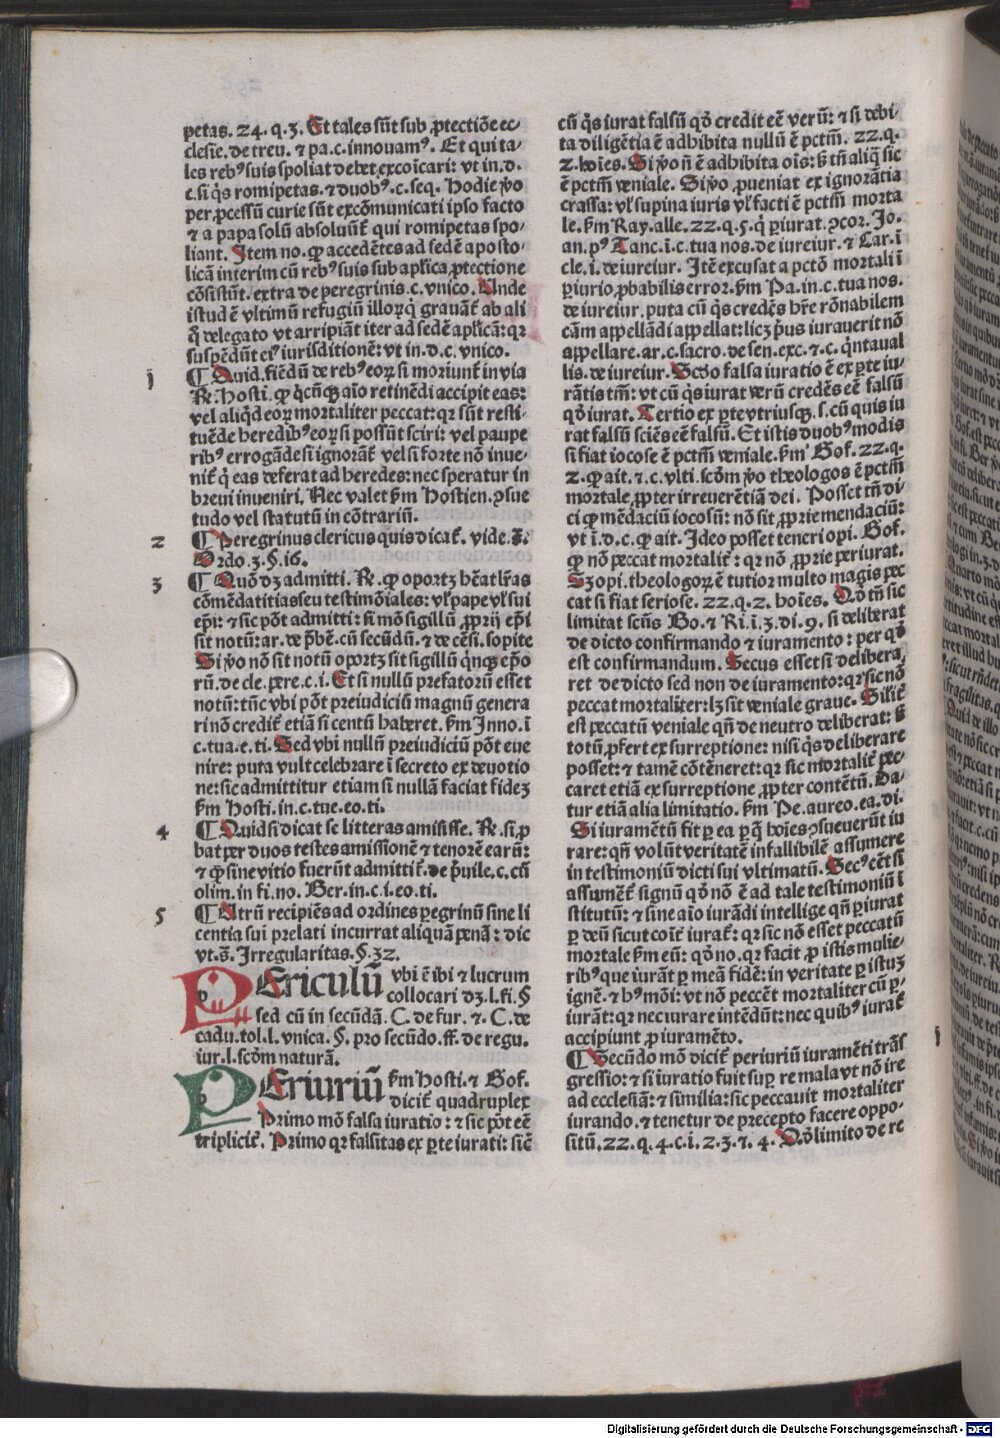 petas. 24. q. 3. Et tales sũt sub ꝓtectiõe ec-
clesie. de treu. ⁊ pa. c. innouamꝰ. Et qui ta-
les rebꝰ suis spoliat debet excõicari: vt in. d.
c. si q̃s romipetas. ⁊ duobꝰ. c. seq. Hodie ꝟo
per ꝓcessũ curie sũt excõmunicati ipso facto
⁊ a papa solũ absoluũt̃ qui romipetas spo-
liant. Item no. ꝙ accedẽtes ad sedẽ aposto-
licã interim cũ rebꝰ suis sub aplica ꝓtectione
cõsistũt. extra de peregrinis. c. vnico. Unde
istud ẽ vltimũ refugiũ illoꝝ q̃ grauãt̃ ab ali
q̃ delegato vt arripiãt iter ad sedẽ aplicã: qꝛ
suspẽdũt eiꝰ iurisditionẽ: vt in. d. c. vnico.
1 ¶ Quid. fiẽdũ de rebꝰ eoꝝ si moriunt̃ in via
Rñ. Hosti. ꝙ q̃cũqꝫ aĩo retinẽdi accipit eas:
vel aliqd eoꝝ mortaliter peccat: qꝛ sũt resti-
tuẽde heredibꝰ eoꝝ si possũt sciri: vel paupe
ribꝰ errogãde si ignorãt̃ vel si forte nõ inue-
nit̃ q̃ eas deferat ad heredes: nec speratur in
breui inueniri. Nec valet ẞm Hostien. ꝯsue
tudo vel statutũ in cõtrariũ.
2 ¶ Peregrinus clericus quis dicat̃. vide. s̃.
Ordo. 3. §. 16.
3 ¶ Quõ dꝫ admitti. Rñ. ꝙ oportꝫ hẽat lr̃as
cõmẽdatitias seu testimõiales: vl̃ pape vl̃ sui
epĩ: ⁊ sic põt admitti: si mõ sigillũ ꝓprij epĩ
sit notũ: ar. de p̃bẽ. cũ secũdũ. ⁊ de cẽsi. sopite
Si ꝟo nõ sit notũ oportꝫ sit sigillũ q̃nqꝫ ep̃o
rũ. de cle. pere. c. i. Et si nullũ prefatorũ esset
notũ: tũc vbi põt preiudiciũ magnũ genera
ri nõ credit̃ etiã si centũ haberet. ẞm Inno. ĩ
c. tua. e. ti. Sed vbi nullũ preiudiciũ põt eue
nire: puta vult celebrare ĩ secreto ex deuotio
ne: sic admittitur etiam si nullã faciat fidẽ
ẞm Hosti. in. c. tue. eo. ti.
4 ¶ Quid si dicat se litteras amisisse. Rñ. si ꝓ
bat per duos testes amissionẽ ⁊ tenorẽ earũ:
⁊ ꝙ sine vitio fuerũt admittit̃. de p̃uile. c. cũ
olim. in fi. no. Ber. in. c. i. eo. ti.
5 ¶ Utrũ recipiẽs ad ordines ꝑegrinũ sine li
centia sui prelati incurrat aliquã penã: dic
vt. s̃. Irregularitas. §. 32.
PEriculũ vbi ẽ ibi ⁊ lucrum
collocari dꝫ. l. fi. §
sed cũ in secũdã. C. de fur. ⁊. C. de
cadu. tol. l. vnica. §. pro secũdo. ff. de regu.
iur. l. scõm naturã.
PEriuriũ ẞm Hosti. ⁊ Gof.
dicit̃ quadruplex
Primo mõ falsa iuratio: ⁊ sic põt eẽ
tripliciť. Primo qꝛ falsitas ex ꝑte iurati: sic̃
cũ q̃s iurat falsũ qõ credit eẽ verũ: ⁊ si debi-
ta diligẽtia ẽ adhibita nullũ ẽ pctm̃. 22. q.
2. hoĩes. Si ꝟo ñ ẽ adhibita oĩs: ẞ tñ aliq̃ sic
ẽ pctm̃ veniale. Si ꝟo ꝓueniat ex ignorãtia
crassa: vl̃ supina iuris vl̃ facti ẽ pctm̃ morta
le. ẞm Ray. alle. 22. q. 5. q̃ ꝑiurat. ꝯcor. Jo.
an. pꝰ Tanc. i. c. tua nos. de iureiur. ⁊ Car. ĩ
cle. i. de iureiur. Itẽ excusat a pctõ mortali ĩ
ꝑiurio ꝓbabilis error. ẞm Pa. in. c. tua nos.
de iureiur. puta cũ q̃s credẽs hr̃e rõnabilem
cãm appellãdi appellat: licꝫ p̃us iurauerit nõ
appellare. ar. c. sacro. de sen. exc. ⁊. c. q̃ntaual
lis. de iureiur. Scdo falsa iuratio ẽ ex ꝑte iu-
rãtis tm̃: vt cũ q̃s iurat verũ credẽs eẽ falsũ
qõ iurat. Tertio ex ꝑte vtriusqꝫ. s. cũ quis iu
rat falsũ sciẽs eẽ falsũ. Et istis duobꝰ modis
si fiat iocose ẽ pctm̃ veniale. ẞm Gof. 22. q.
2. ꝙ ait. ⁊. c. vlti. scõm ꝟo theologos ẽ pctm̃
mortale ꝓpter irreuerẽtiã dei. Posset tñ di-
ci ꝙ mẽdaciũ iocosũ: nõ sit ꝓprie mendaciũ:
vt ĩ. d. c. ꝙ ait. Ideo posset teneri opi. Gof.
ꝙ nõ peccat mortaliť: qꝛ nõ ꝓprie periurat.
Sꝫ opi. theologoꝝ ẽ tutior multo magis pec
cat si fiat seriose. 22. q. 2. hoĩes. Qõ tñ sic
limitat scũs Bo. ⁊ Ri. ĩ. 3. di. 9. si deliberat
de dicto confirmando ⁊ iuramento: per qõ
est confirmandum. Secus esset si delibera,
ret de dicto sed non de iuramento: qꝛ sic nõ
peccat mortaliter: lꝫ sit veniale graue. Siliť
est peccatũ veniale qñ de neutro deliberat: ẞ
totũ ꝓfert ex surreptione: nisi q̃s deliberare
posset: ⁊ tamẽ cõtẽneret: qꝛ sic mortaliť pec-
caret etiã ex surreptione ꝓpter contẽtũ. Da-
tur etiã alia limitatio. ẞm Pe. aureo. ea. di.
Si iuramẽtũ fit ꝑ ea ꝑ q̃ hoĩes ꝯsueuerũt iu
rare: qñ volũt veritatẽ infallibilẽ assumere
in testimoniũ dicti sui vltimatũ. Secꝰ eẽt si
assumẽt̃ signũ qõ nõ ẽ ad tale testimoniũ ĩ
stitutũ: ⁊ sine aĩo iurãdi intellige qñ ꝑiurat
ꝑ deũ sicut coĩť iurat̃: qꝛ sic nõ esset peccatũ
mortale ẞm eũ: qõ no. qꝛ facit ꝓ istis mulie-
ribꝰ que iurãt ꝑ meã fidẽ: in veritate ꝑ istuꝫ
ignẽ. ⁊ hꝰmõi: vt nõ peccẽt mortaliter cũ ꝑ-
iurãt: qꝛ nec iurare intẽdũt: nec quibꝰ iurat̃
accipiunt ꝓ iuramẽto.
1 ¶ Secũdo mõ dicit̃ periuriũ iuramẽti trãs
gressio: ⁊ si iuratio fuit suꝑ re mala vt nõ ire
ad ecclesiã: ⁊ similia: sic peccauit mortaliter
iurando. ⁊ tenetur de precepto facere oppo-
sitũ. 22. q. 4. c. i. 2. 3. ⁊. 4. Qõ limito de re
Digitalisierung gefördert durch die Deutsche Forschungsgemeinschaft - DFG